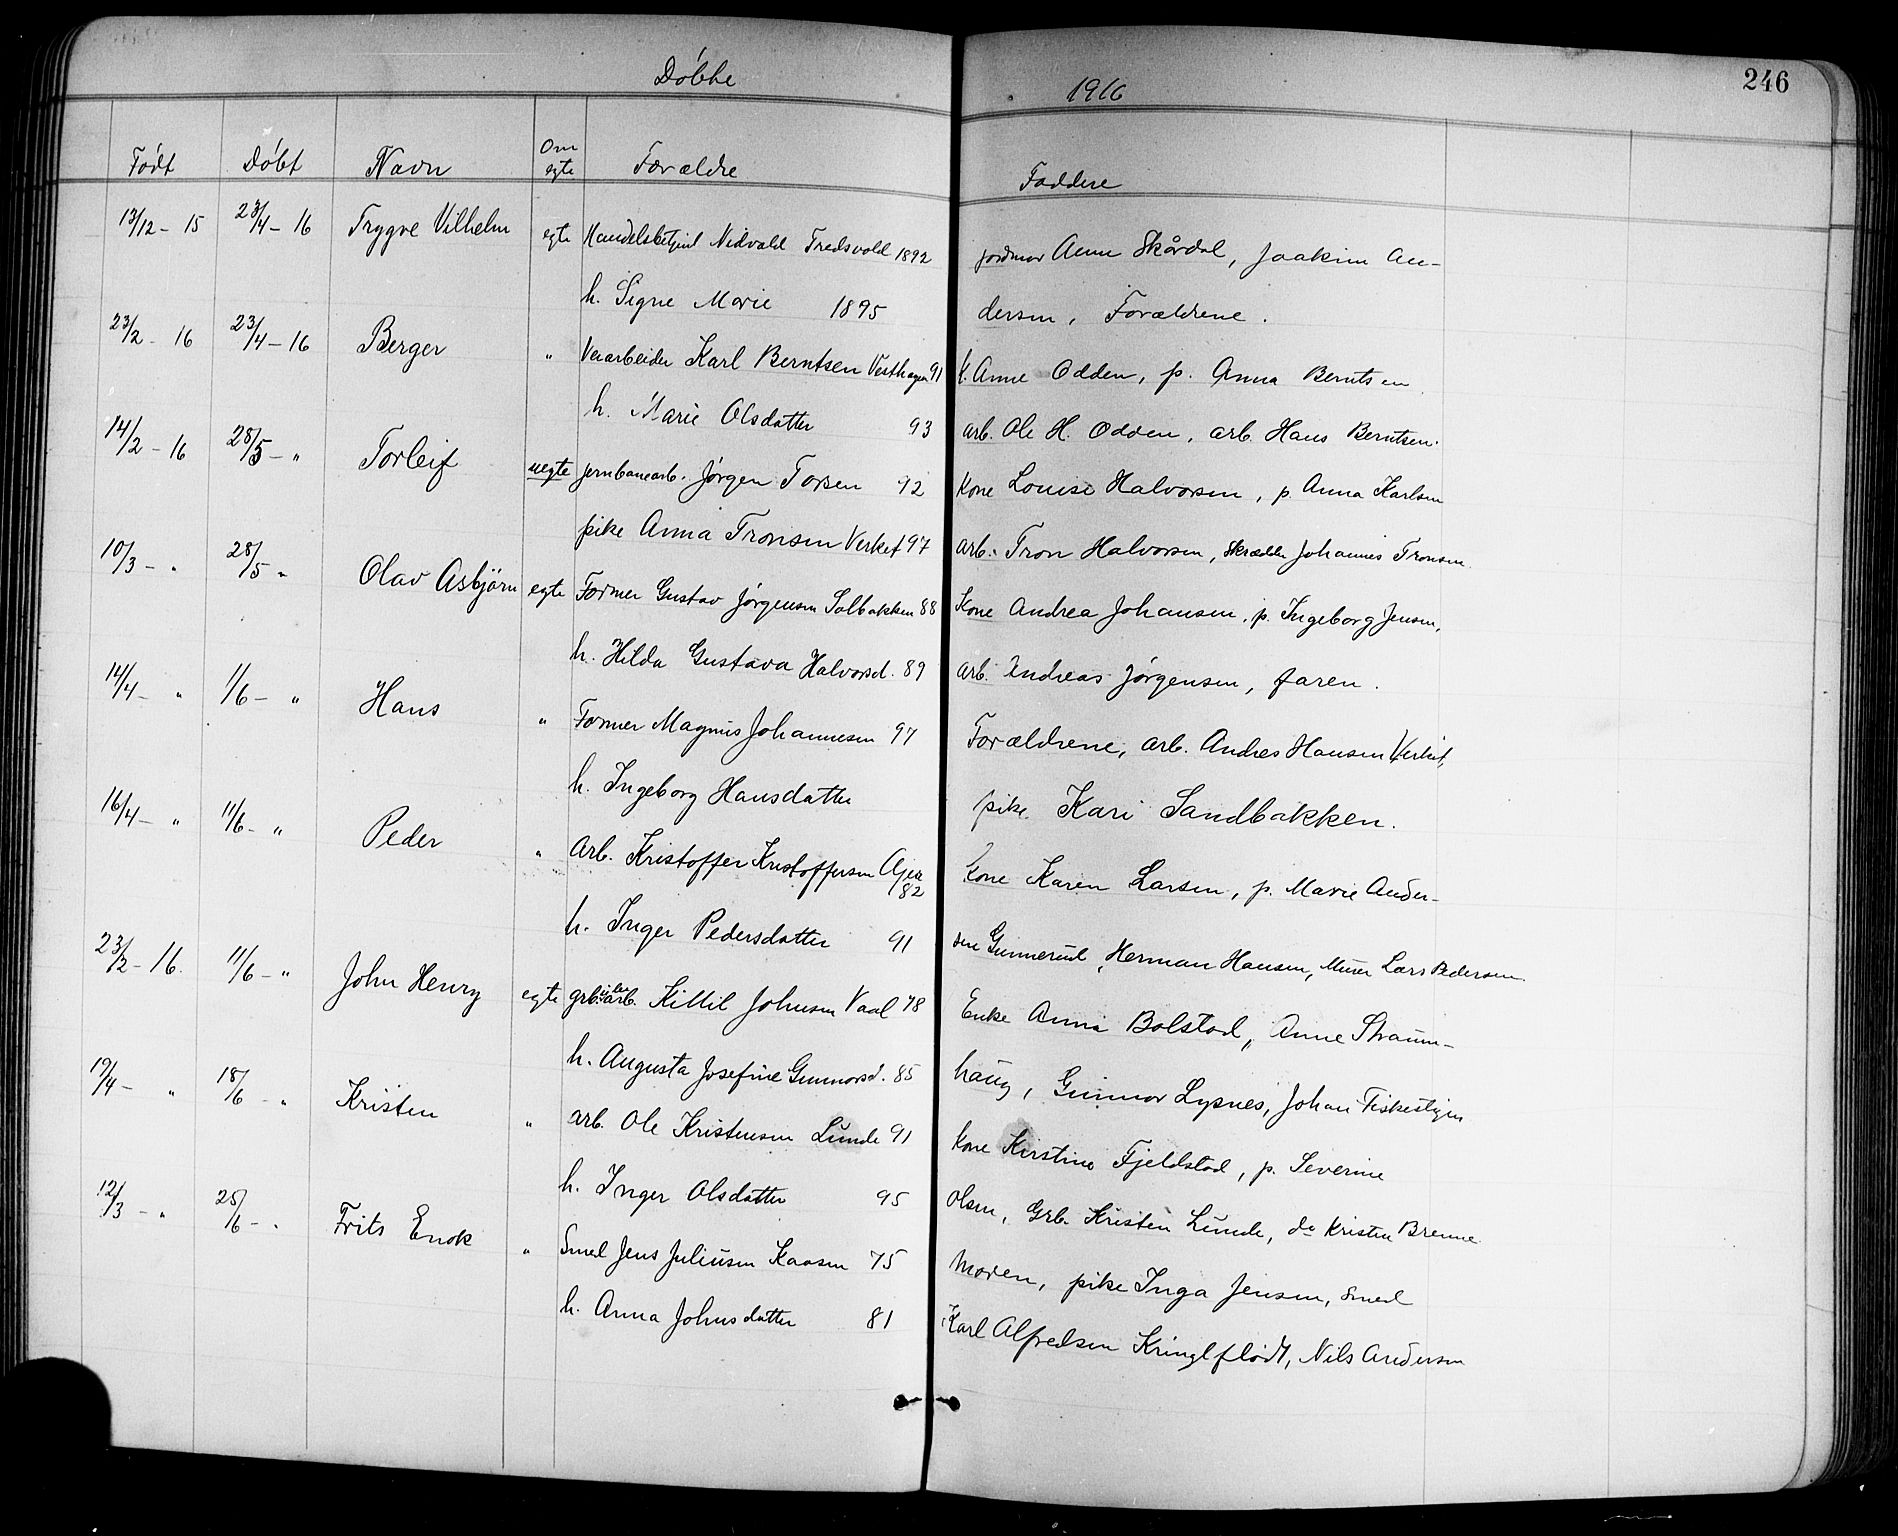 Døbte
1916
246
Født Døbt Navn Om egte Forældre Faddere
13/12 - 15 23/4 - 16 Trygve Vilhelm egte Handelsbetjent Nidvald Fredsvold 1892 jordmor Anne Skårdal, Joakim An-
h. Signe Marie 1895 dersen, Forældrene.
23/2 - 16 23/4 - 16 Berger " Veiarbeider Karl Berntsen Vesthagen 91 k. Anne Odden, p. Anna Berntsen
h. Marie Olsdatter 93 arb. Ole H. Odden, arb. Hans Berntsen.
14/2 - 16 28/5 - " Torleif uegte jernbanearb. Jørgen Torsen 92 Kone Louise Halvorsen, p. Anna Karlsen
pike Anna Tronsen Verket 97 arb. Tron Halvorsen, Skrædder Johannes Tronsen.
10/3 - " 28/5 " Olav Asbjørn egte Former Gustav Jørgensen Solbakken 88 Kone Andrea Johansen, p. Ingeborg Jensen,
h. Hilda Gustava Halvorsd. 89 arb. Andreas Jørgensen, faren.
14/4 - " 1/6 - " Hans " Former Magnus Johannesen 97 Forældrene, arb. Andres Hansen Verket,
h. Ingeborg Hansdatter pike Kari Sandbakken.
16/4 - " 11/6 - " Peder " Arb. Kristoffer Kristoffersen 82 Kone Karen Larsen, p. Marie Ander-
h. Inger Pedersdatter 91 sen Gunnerud, Herman Hansen, Murer Lars Pedersen
23/2 - 16. 11/6 - " John Henry egte Kittil Johnsen Vaal 78 Enke Anna Bolstad, Anne Straum-
h. Augusta Josefine Gunnorsd. 85 haug, Gunnor Lysnes, Johan Fiskestigen
19/4 - " 18/6 - " Kristen " arb. Ole Kristensen Lunde 91 kone Kirstine Fjeldstad, p. Severine
h. Inger Olsdatter 95 Olsen, Grb. Kristen Lunde, do Kristen Brenne
12/3 - " 25/6 - " Frits Enok " Smed Jens Juliusen Kaasen 75 Moren, pike Inga Jensen, Smed
h. Anna Johnsdatter 81 Karl Alfredsen Kringlflødt, Nils Andersen